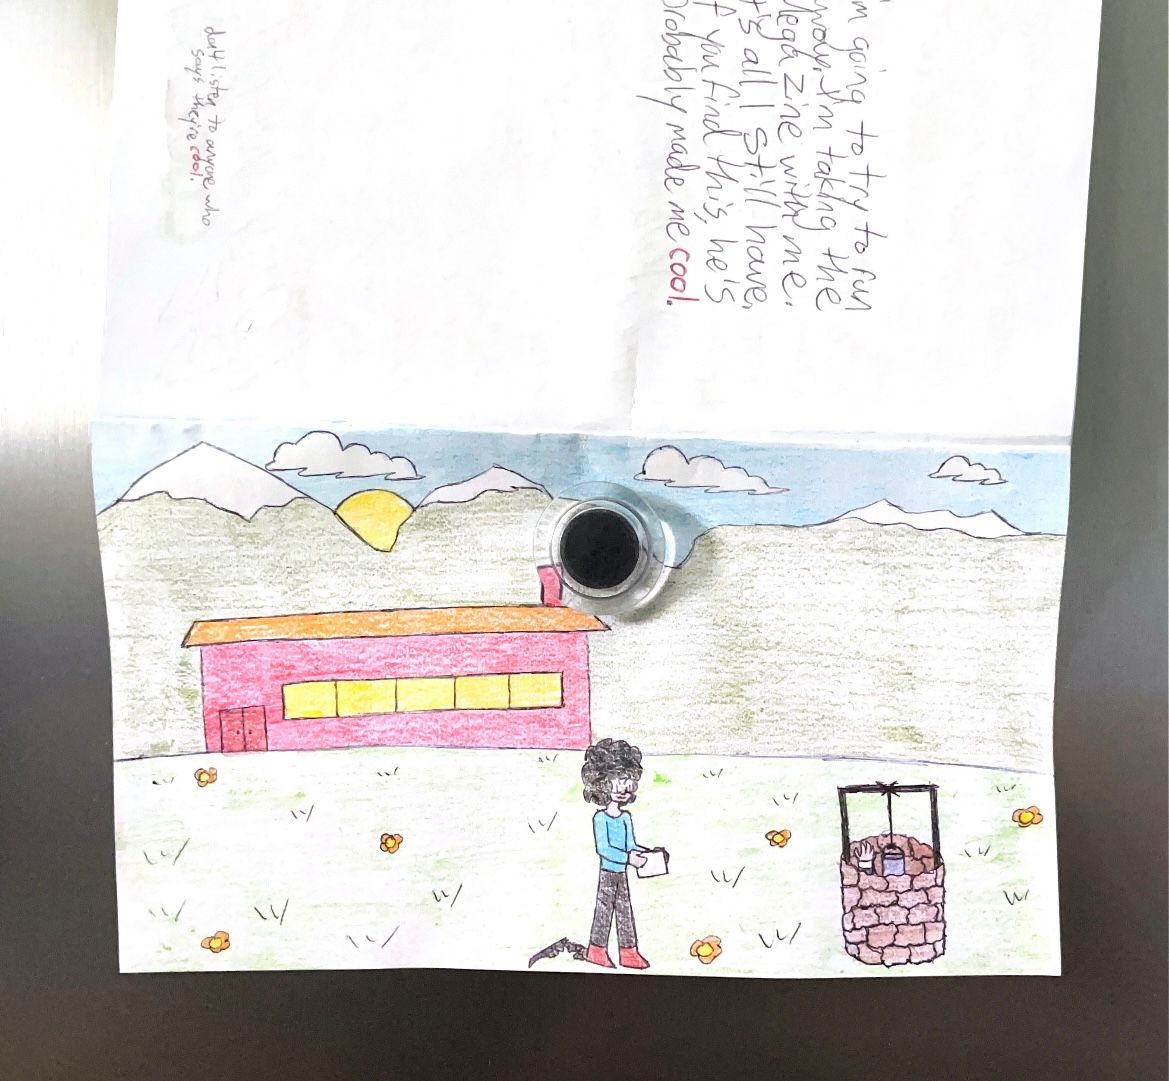 'm going to try to run
away. I'm taking the
lega zine with me.
t's all I still have.
f you find this, he's
probably made me cool.
don't listen to anyone who
says they're cool.